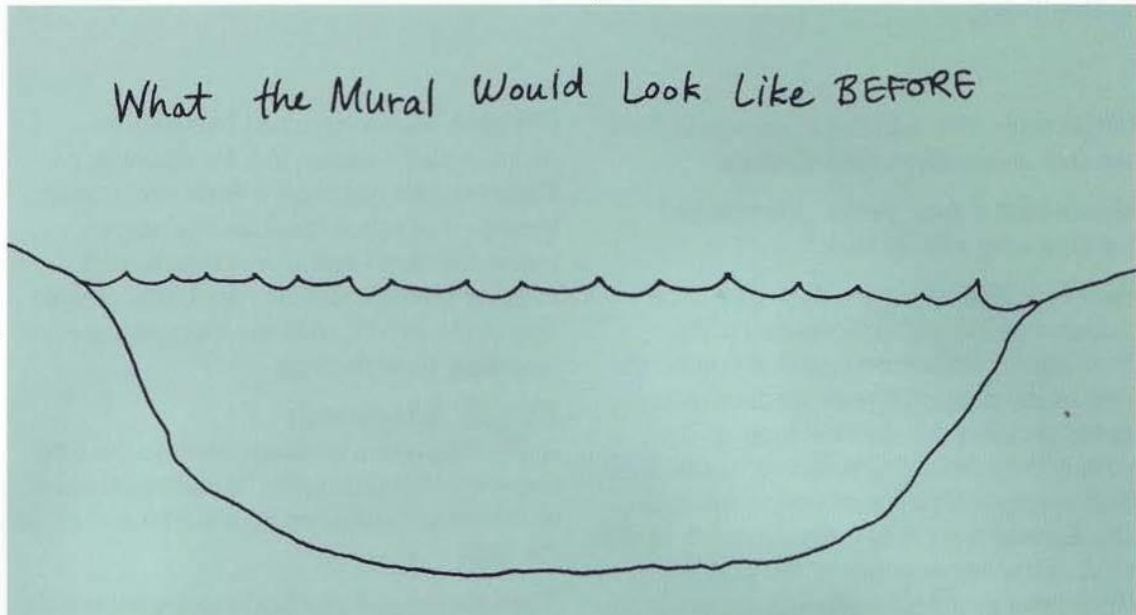 What the Mural Would Look Like BEFORE